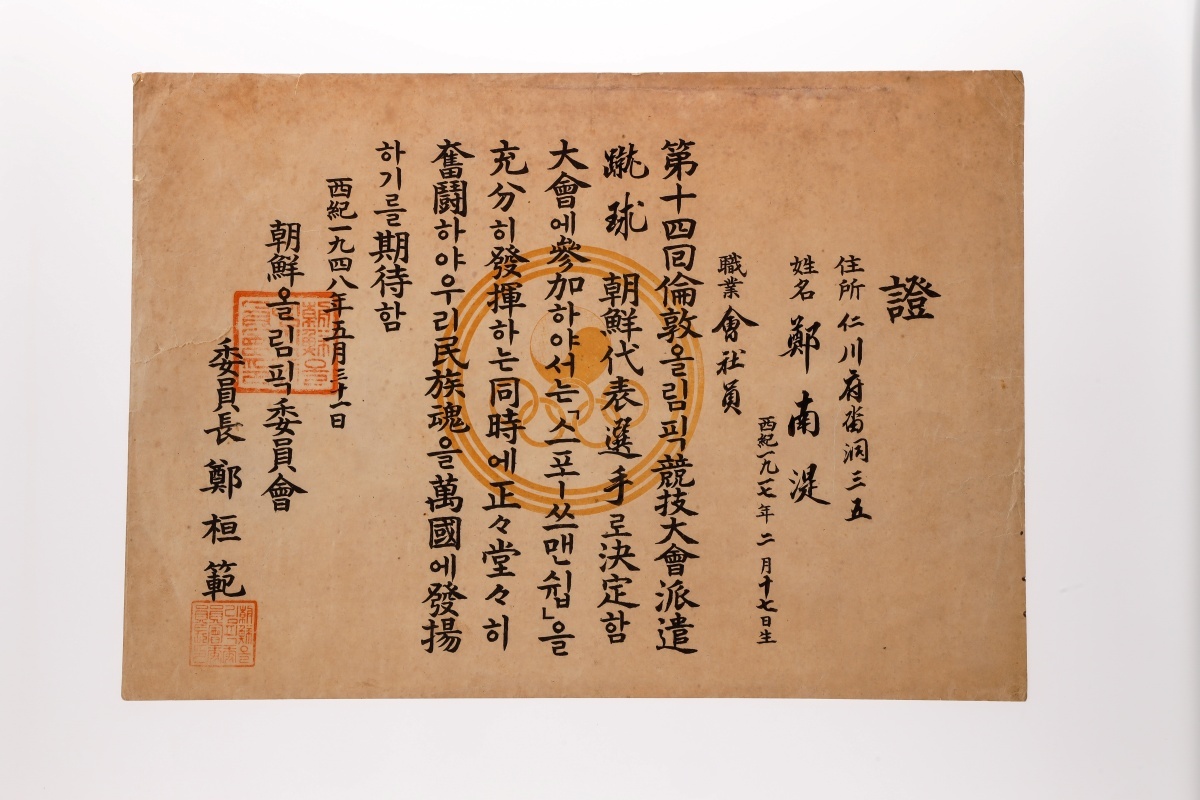 證
住所 仁川府沓洞三五
姓名 鄭南湜
西紀一九一七年二月十七日生
職業 會社員
第十四回倫敦올림픽競技大會派遣
蹴球 朝鮮代表選手로決定함
大會에參加하야서는「스포ー쓰맨쉽」을
充分히發揮하는同時에正々堂々히
奮鬪하야우리民族魂을萬國에發揚
하기를期待함
西紀一九四八年五月三十一日
朝鮮올림픽委員會
委員長 鄭桓範